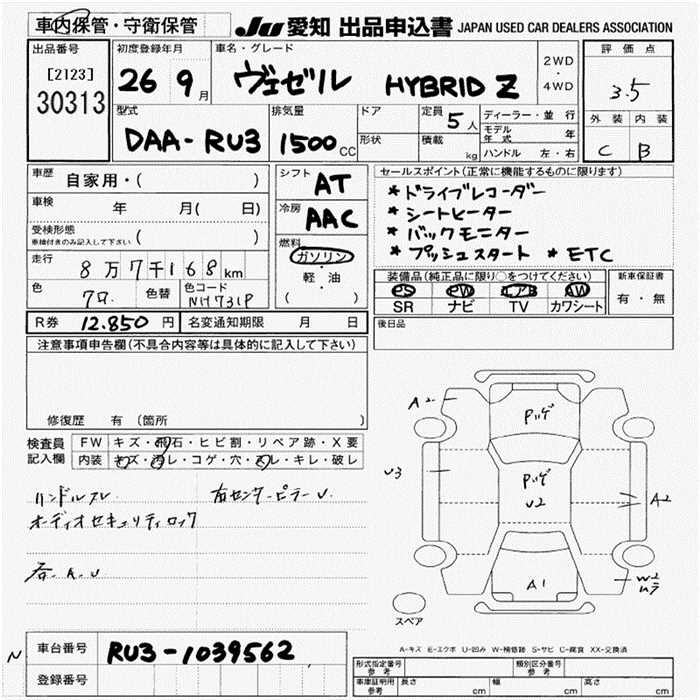 車内保管・守衛保管 JU 愛知 出品申込書 JAPAN USED CAR DEALERS ASSOCIATION
出品番号 初度登録年月 車名・グレード 評価点
[2123]
30313 26 9月 ヴェゼル HYBRID Z 2WD・4WD 3.5
型式 排気量 ドア 定員 5人 ディーラー・並行 外装 内装
DAA-RU3 1500CC 形状 積載 kg モデル年式 年 C B
ハンドル 左・右
車歴 自家用・( ) シフト AT セールスポイント(正常に機能するものに限ります)
車検 年 月( 日) 冷房 AAC *ドライブレコーダー
*シートヒーター
受検形態 ( ) *バックモニター
車検付きのみ記入して下さい 燃料 *プッシュスタート *ETC
走行 8万7千168km ガソリン・軽・油 ( )
装備品(純正品に限り○をつけてください) 新車保証書
色 クロ 色替 色コード NH731P PS PW エアB AW 有・無
SR ナビ TV カワシート
R券 12.850円 名変通知期限 月 日 後日品
注意事項申告欄(不具合内容等は具体的に記入して下さい)
修復歴 有 (箇所 )
検査員記入欄 FW キズ・飛石・ヒビ割・リペア跡・X要
内装 キズ・汚レ・コゲ・穴・スレ・キレ・破レ
ハンドルスレ 右センターピラーU
オーディオセキュリティロック
A2
Pルーフ
U3
Pルーフ
U2
A2
A1
W2
スペア
A-キズ E-エクボ U-凹み W-補修跡 S-サビ C-腐食 XX-交換済
N 車台番号 RU3-1039562
登録番号
形式指定番号 参考 類別区分番号 参考
車庫証明用 参考 長さ cm 幅 cm 高さ cm